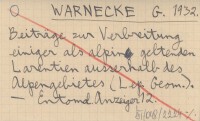 WARNECKE G. 1932.
Beiträge zur Verbreitung
einiger als alpin geltenden
Larentien ausserhalb des
Alpengebietes (Lep. Geom.).
— Entomol. Anzeiger 12.